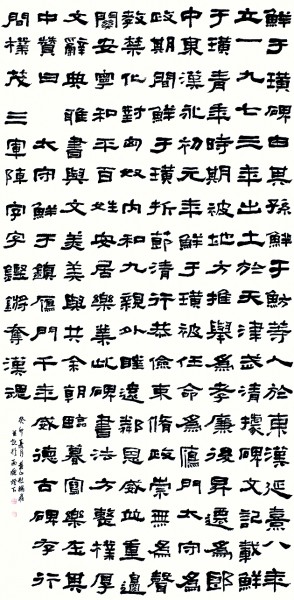 鮮于璜碑由其孫鮮于魴等人於東漢延熹八年
立一九七三年出土於天津武清據碑文記載鮮
于璜青年時期被地方推舉為孝廉後昇遷為郎
中東漢永初元年鮮于璜被任命為鴈門太守
政期間鮮于璜折節清行恭儉東修政崇無為聲
教黎化對匈奴內和九親外睦鄰恩威並重邊
關安寧和平百姓安居樂業此碑書法方整樸厚
文辭典雖書與文美與美共余朝臨暮寫樂在其
中贊曰 太守鮮于鎮鴈門千年威德古碑存行
間樸茂三軍陣字字鏗鏘奪漢魂
癸卯